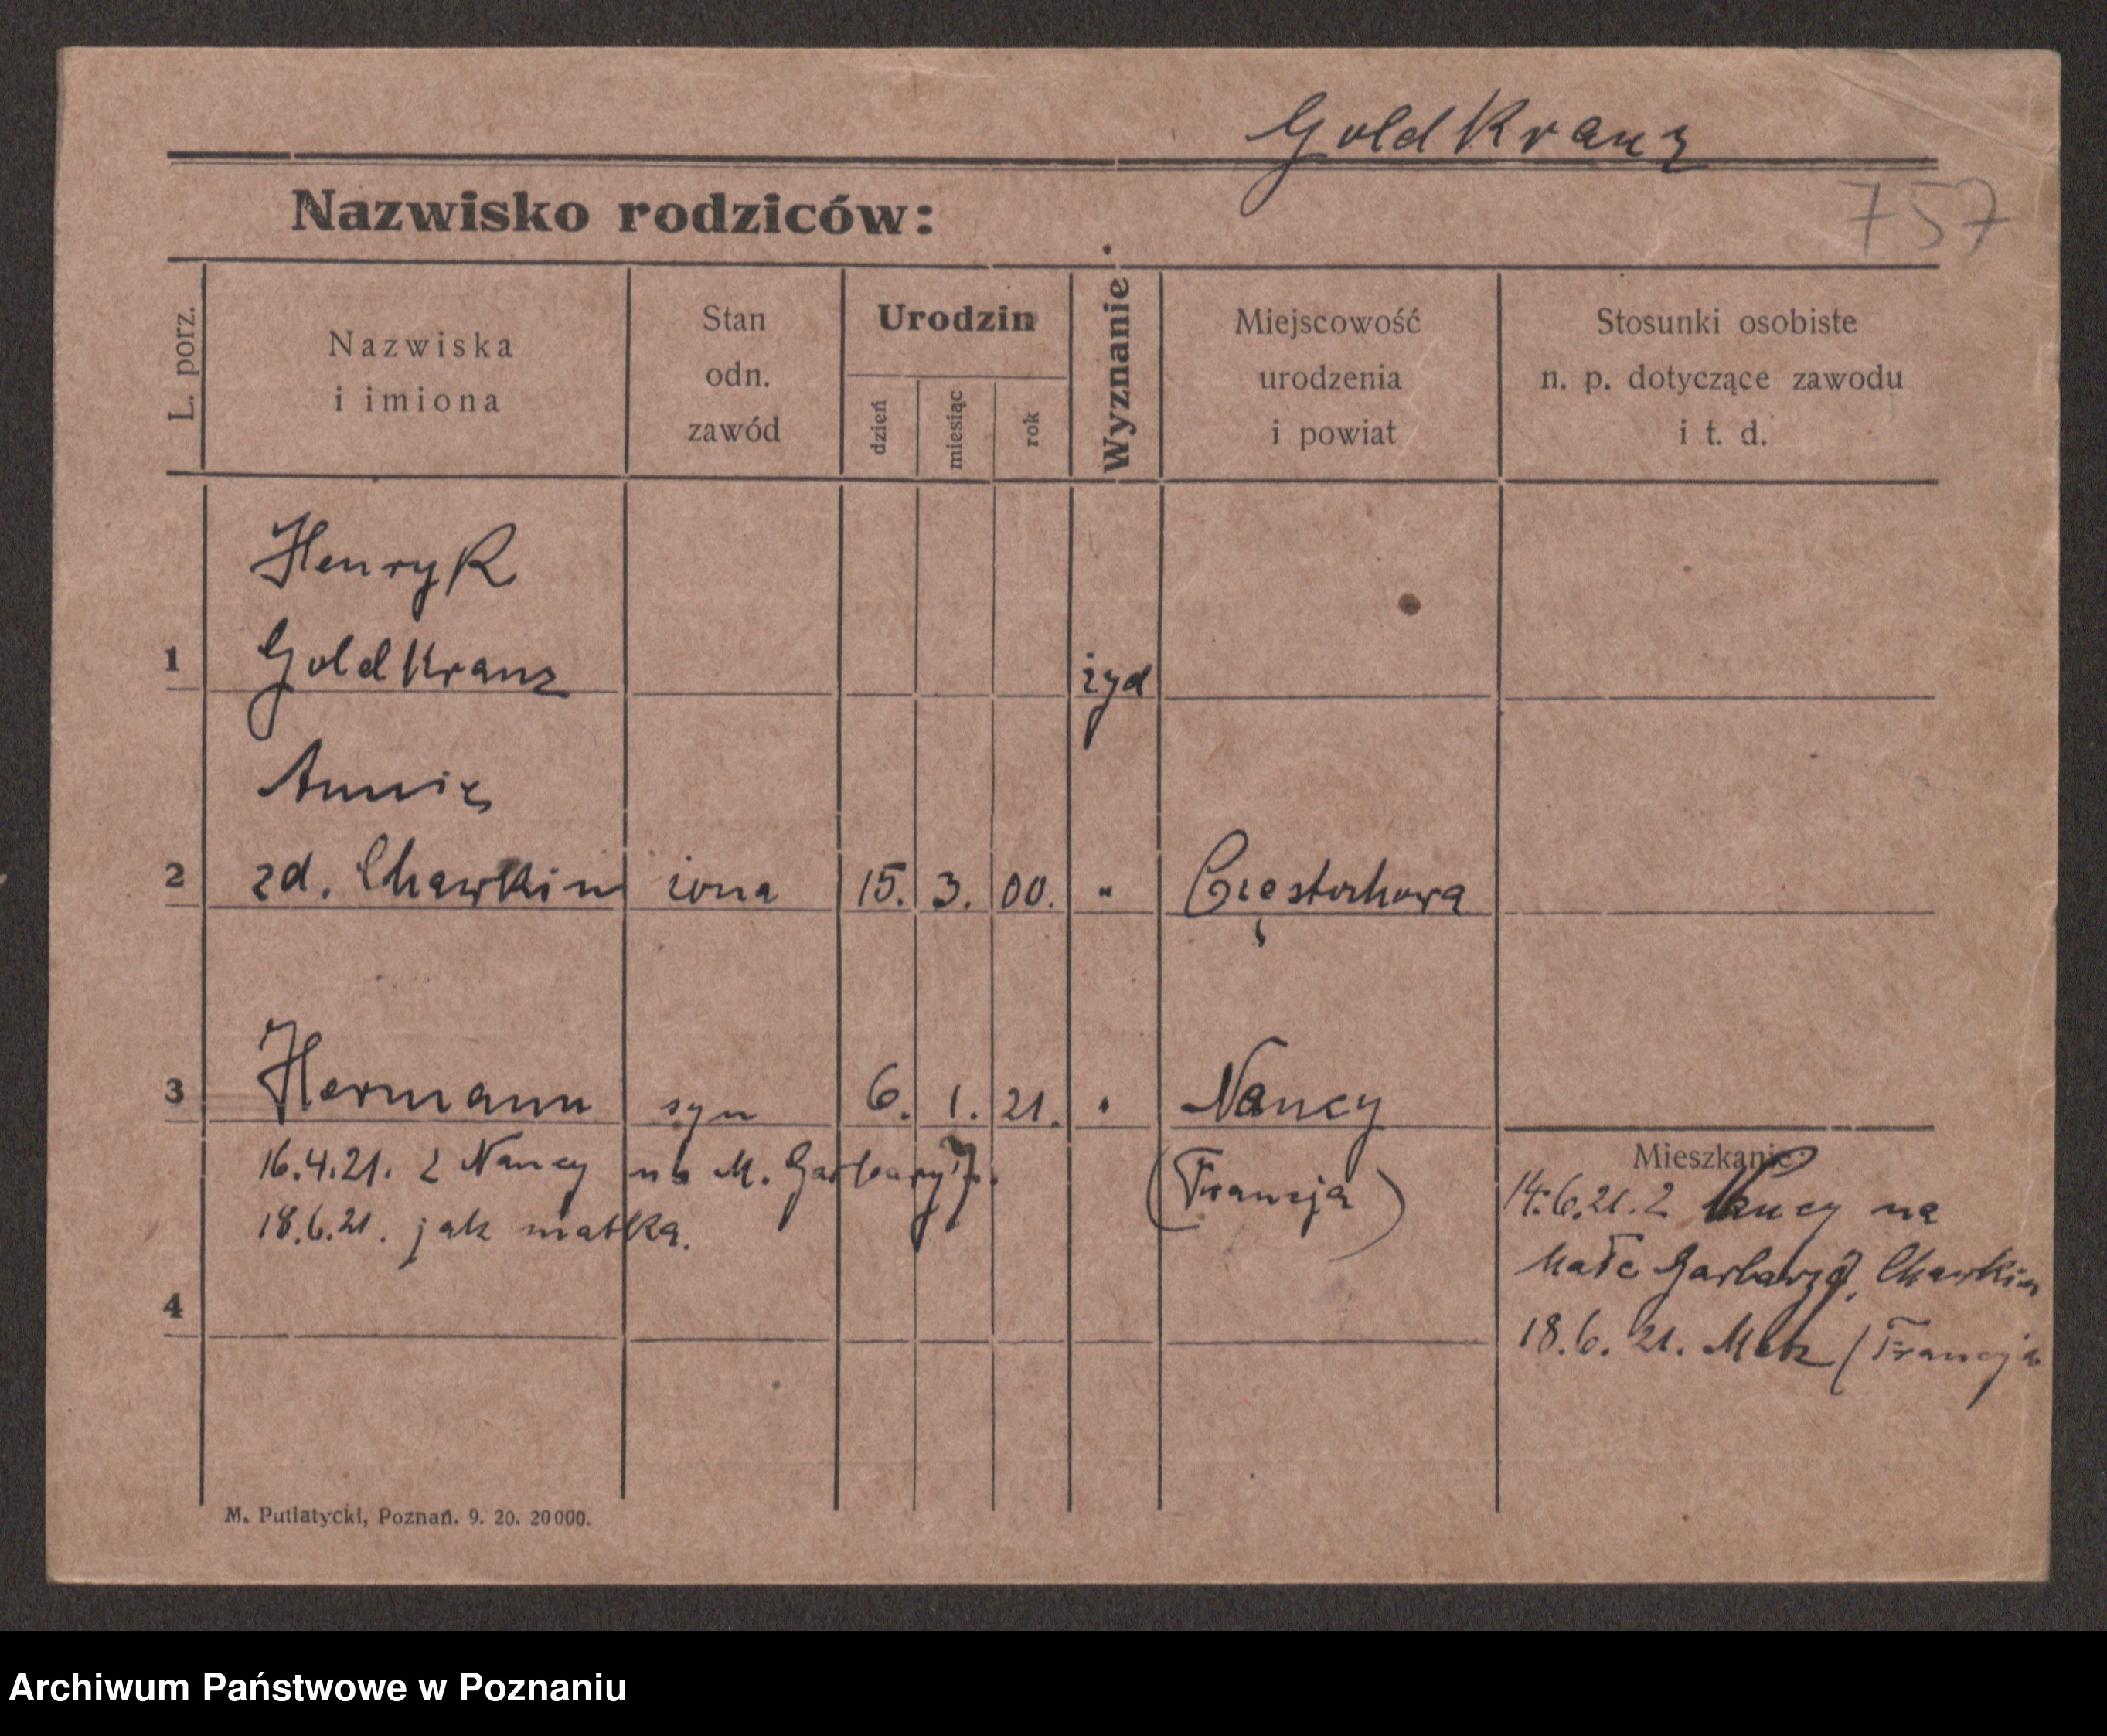 GoldKranz
757
Nazwisko rodziców:
L. porz.
Nazwiska
i imiona
Stan
odn.
zawód
Urodzin
dzień
miesiąc
rok
Wyznanie
Miejscowość
urodzenia
i powiat
Stosunki osobiste
n. p. dotyczące zawodu
i t. d.
HenryK
1 GoldKranz żyd
2 zd. Chawkin żona 15. 3. 00. " Częstochowa
3 Hermann syn 6. 1. 21. " Nancy
(Francja)
16.4.21. z Nancy na M. Garbary 7.
18.6.21. jak matka.
4
Mieszkanie:
14.6.21. z Nancy na
Małe Garbary Chawkin
18.6.21. Metz (Francja
M. Putiatycki, Poznań. 9. 20. 20000.
Archiwum Państwowe w Poznaniu